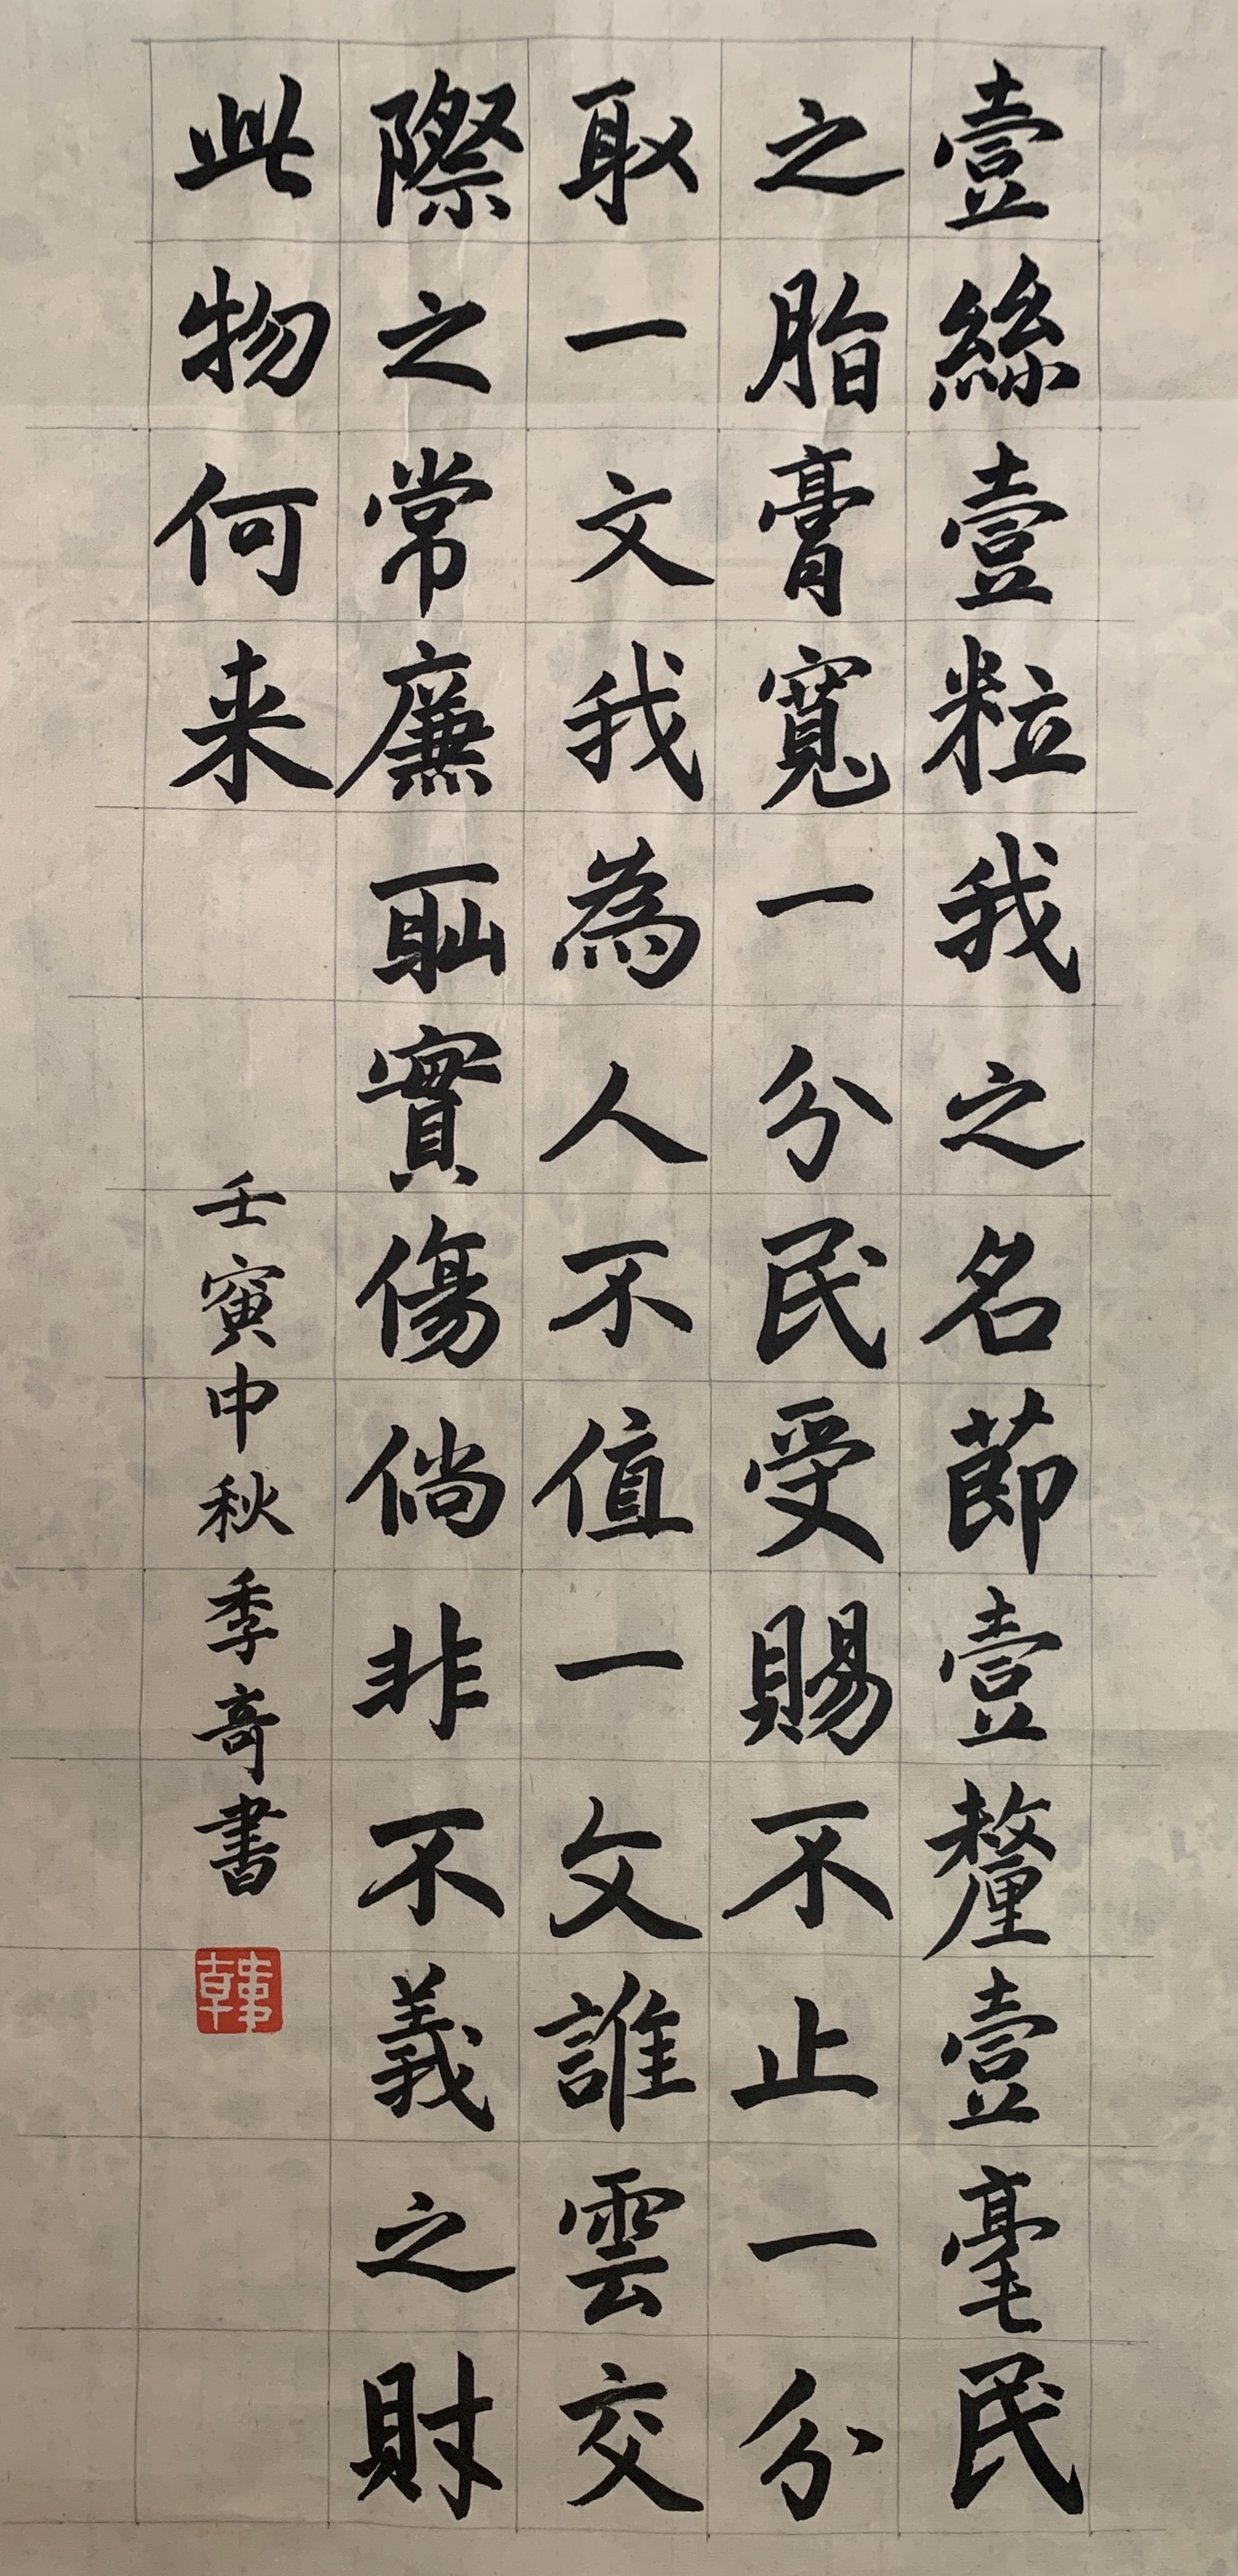 壹絲壹粒我之名節壹釐壹毫民
之脂膏寬一分民受賜不止一分
取一文我為人不值一文誰雲交
際之常廉恥實傷倘非不義之財
此物何来
壬寅中秋季奇書
韓